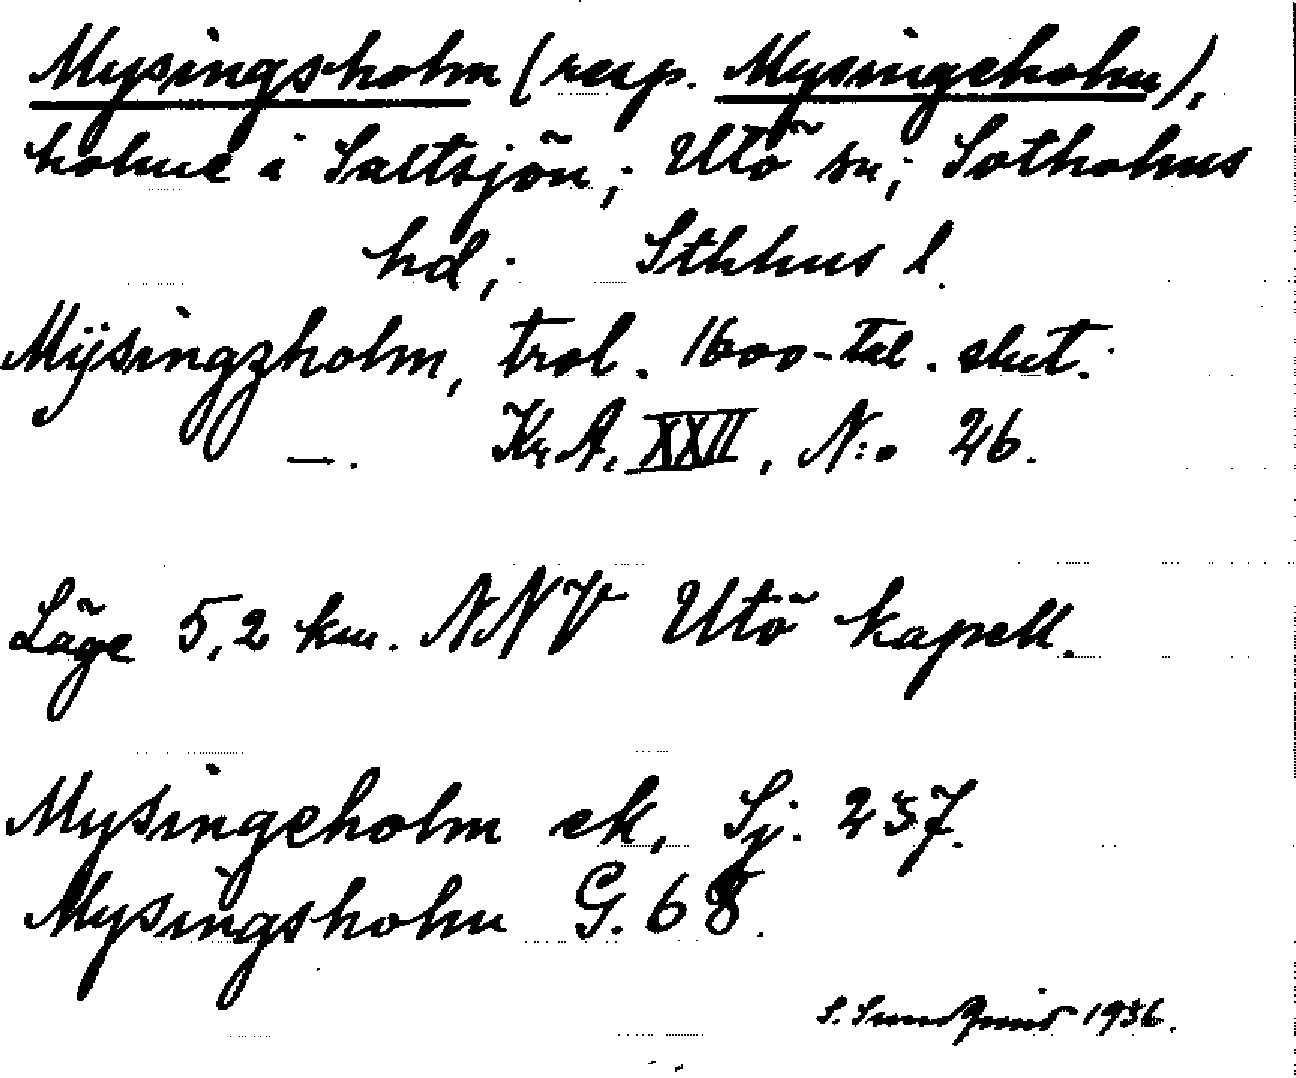 Mysingsholm (resp. Mysingeholm),
holme i Saltsjön; Utö sn; Sotholms
hd; Sthlms l.
Mÿsingzholm, trol. 1600-tal. slut.
—. Kr.A. XXII, N:o 26.
Läge 5,2 km. NNV Utö kapell.
Mysingeholm ek, Sj. 257.
Mysingsholm G. 68.
S. Sundqvist 1936.